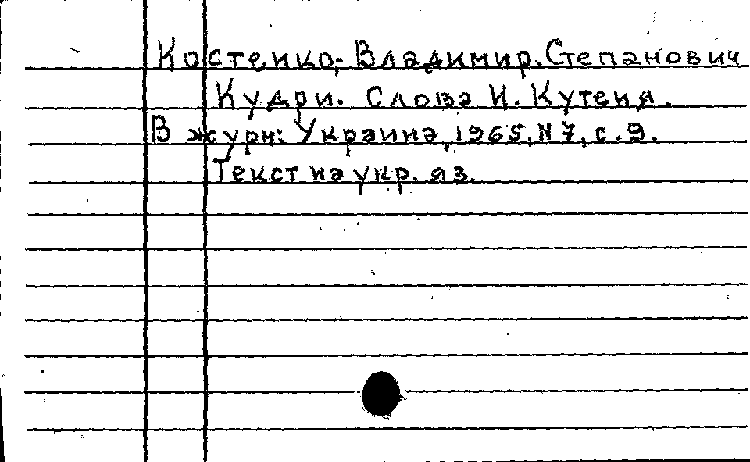 Костенко, Владимир Степанович
Кудри. Слова И. Кутеня.
В журн: Украина, 1965, N 7, с. 9.
Текст на укр. яз.